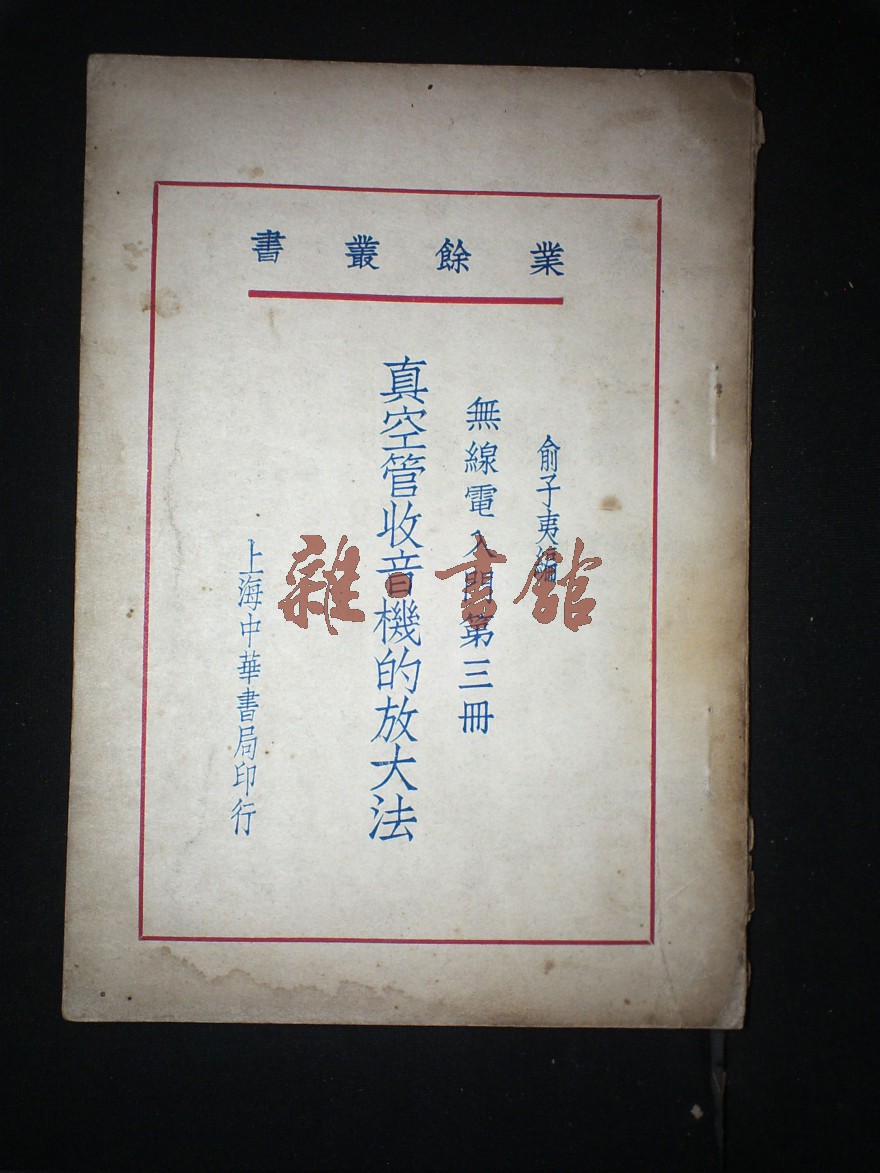 業餘叢書
俞子夷編
無線電入門第三冊
真空管收音機的放大法
上海中華書局印行
雜·書館